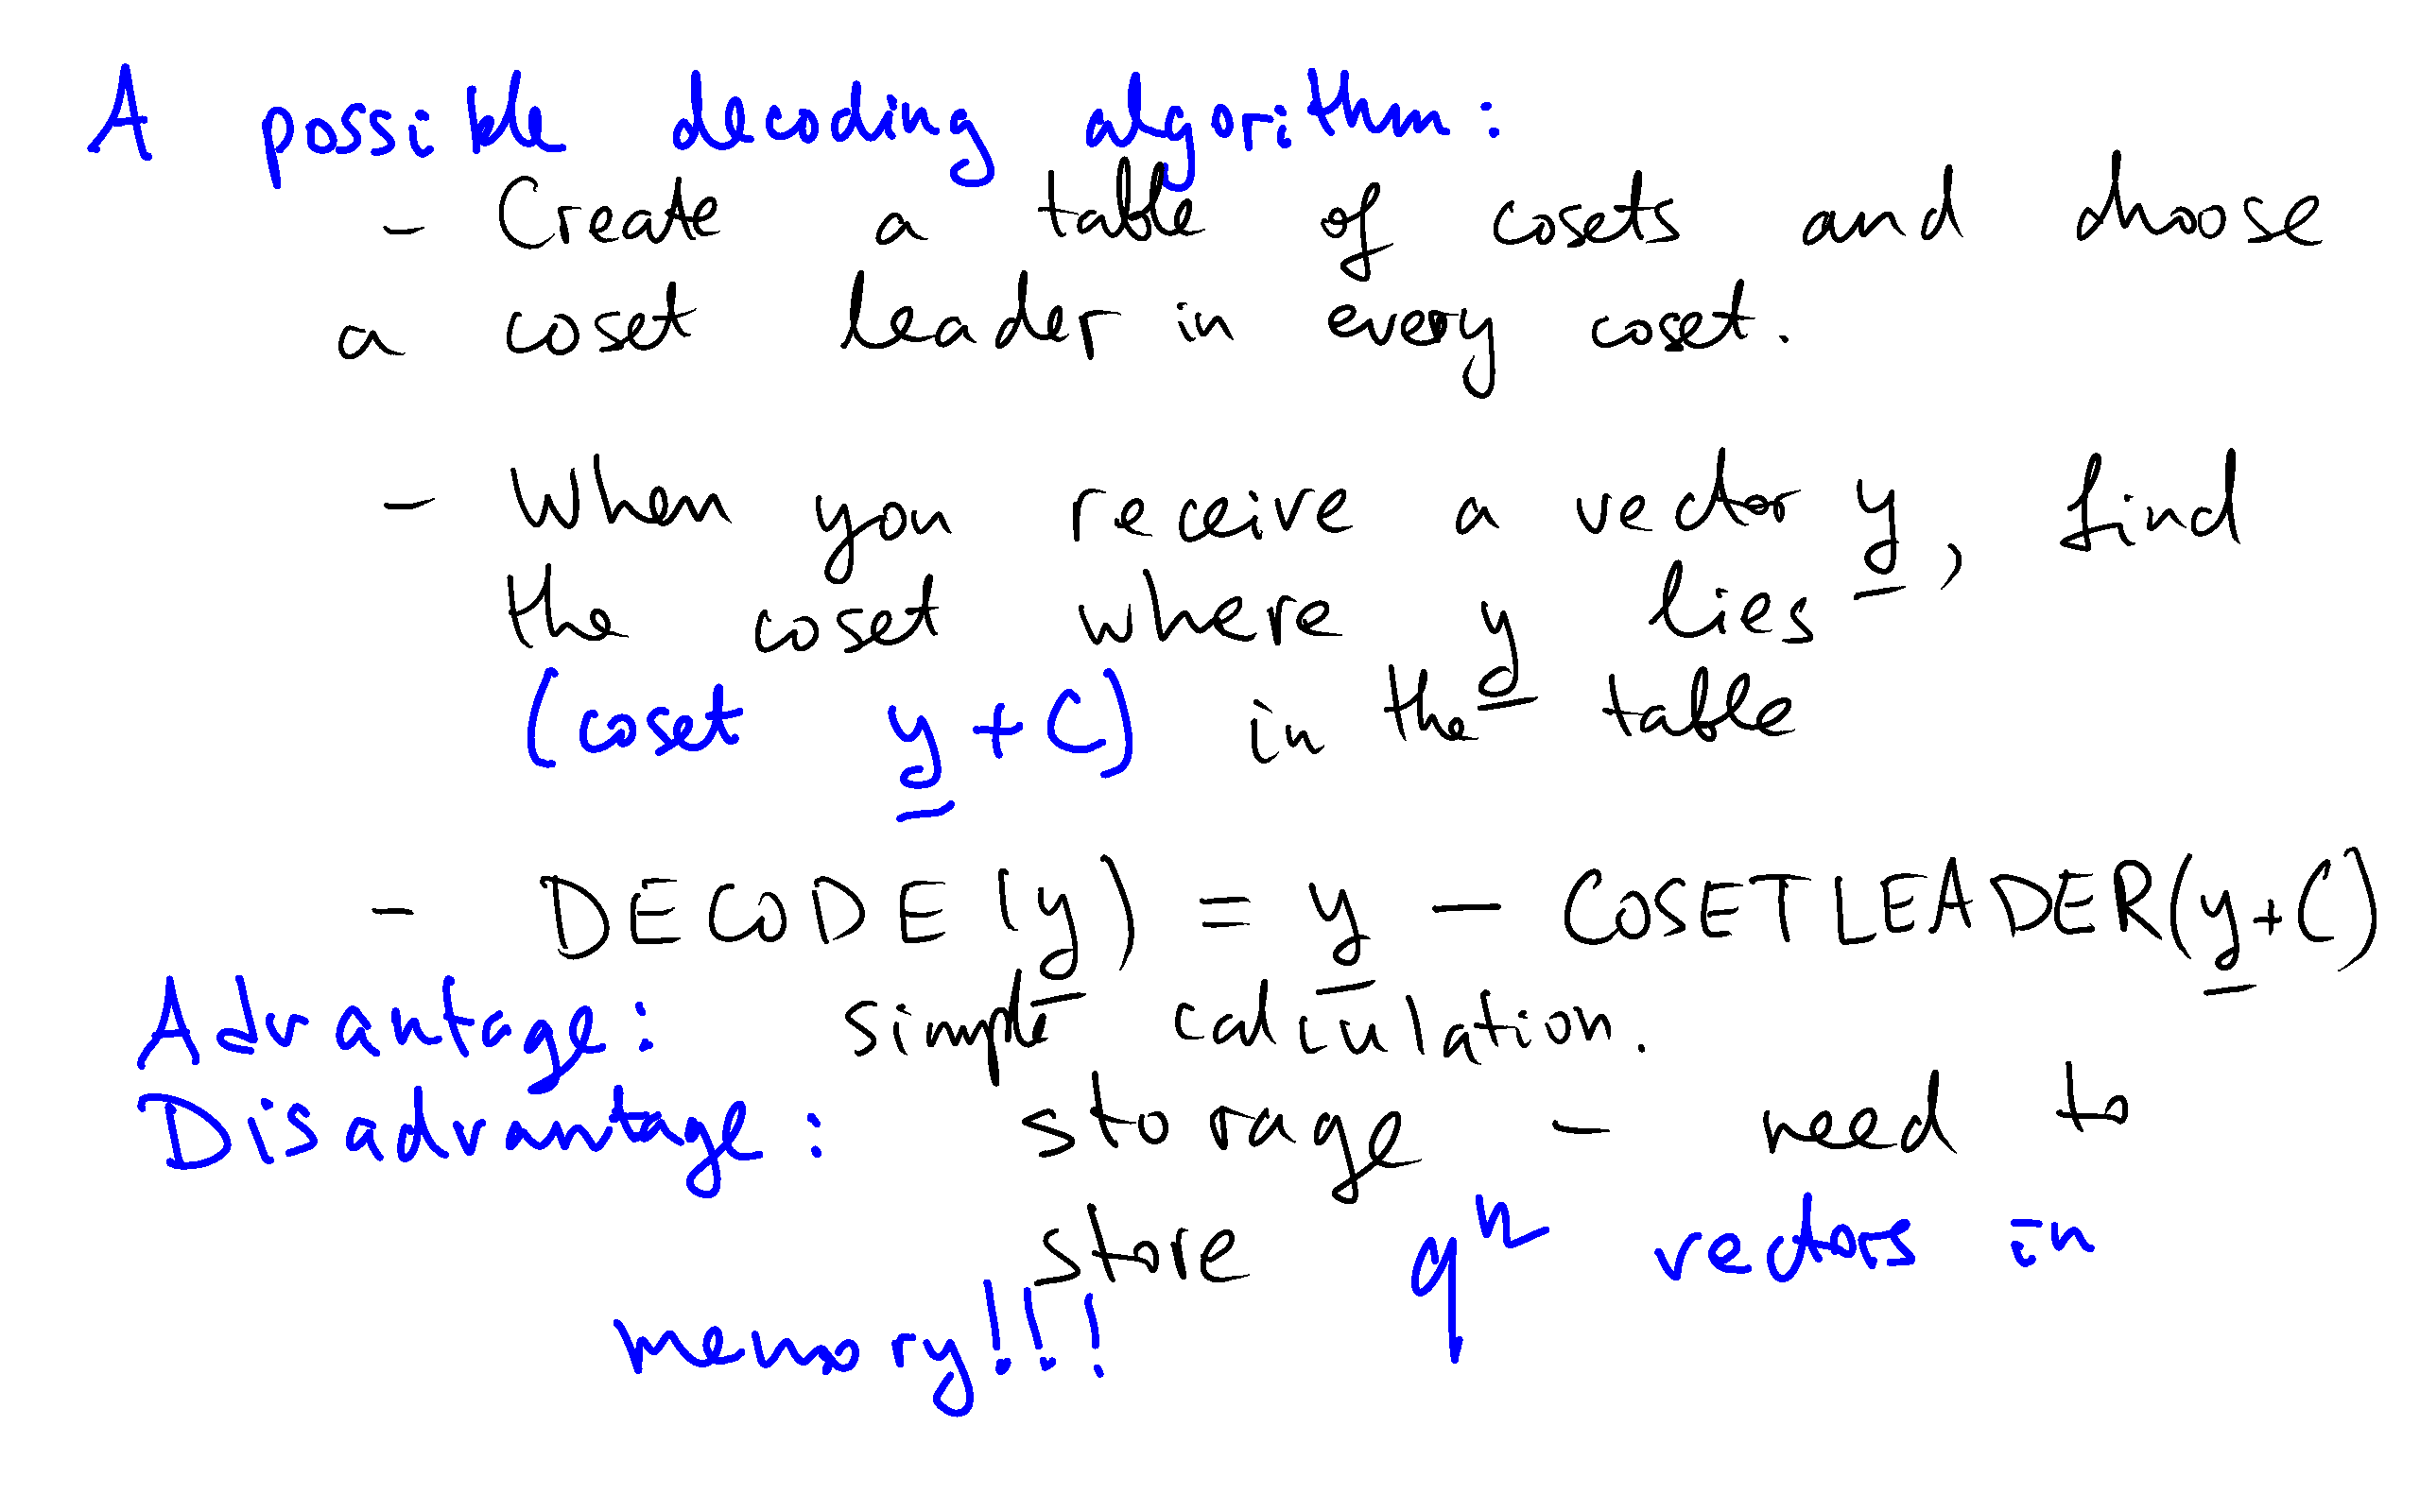 A possible decoding algorithm:
- Create a table of cosets and choose
a coset leader in every coset.
- When you receive a vector y, find
the coset where y lies
(coset y + C) in the table
- DECODE(y) = y - COSETLEADER(y+C)
Advantage: simple calculation.
Disadvantage: storage - need to
store qⁿ vectors in
memory!!!